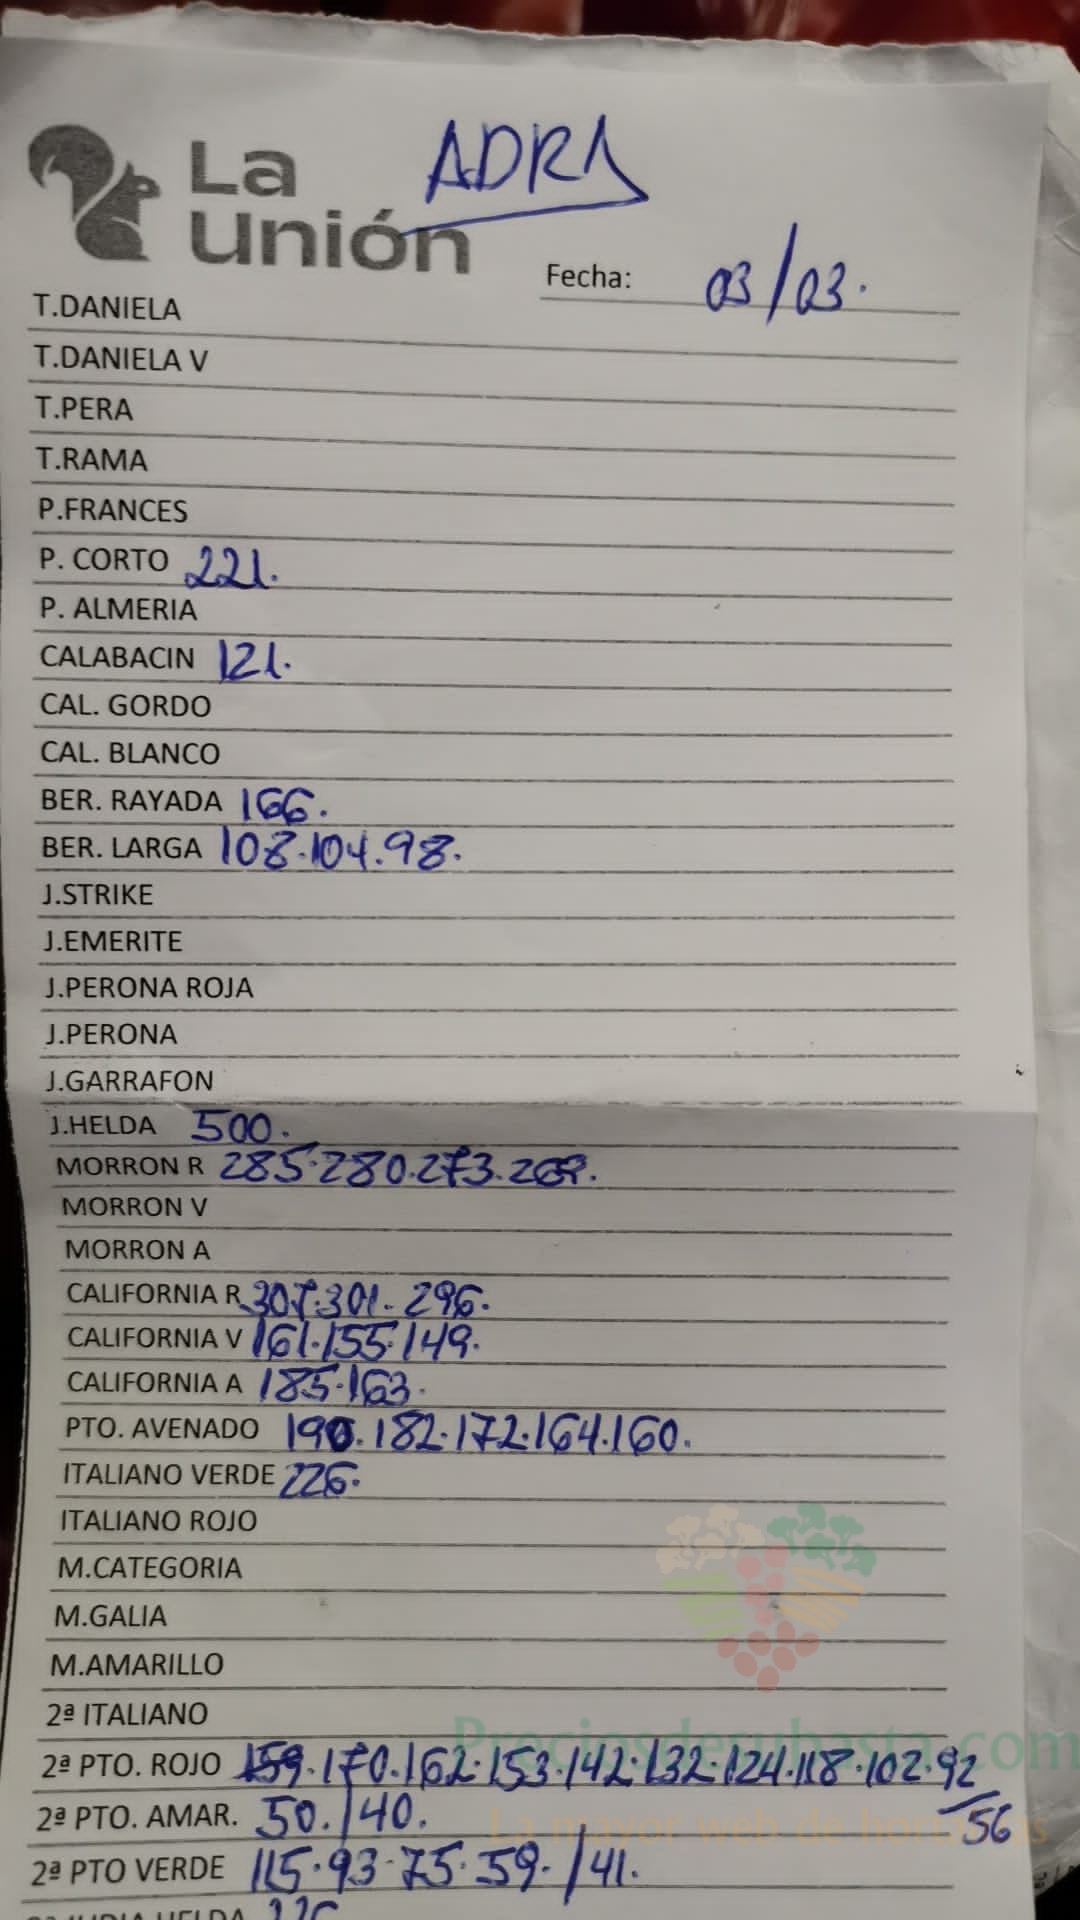 La Unión
ADRA
Fecha: 03/03.
T.DANIELA
T.DANIELA V
T.PERA
T.RAMA
P.FRANCES
P. CORTO 221.
P. ALMERIA
CALABACIN 121.
CAL. GORDO
CAL. BLANCO
BER. RAYADA 166.
BER. LARGA 108.104.98.
J.STRIKE
J.EMERITE
J.PERONA ROJA
J.PERONA
J.GARRAFON
J.HELDA 500.
MORRON R 285.280.273.269.
MORRON V
MORRON A
CALIFORNIA R 307.301.296.
CALIFORNIA V 161.155.149.
CALIFORNIA A 185.163.
PTO. AVENADO 190.182.172.164.160.
ITALIANO VERDE 226.
ITALIANO ROJO
M.CATEGORIA
M.GALIA
M.AMARILLO
2ª ITALIANO
Preciosdesubasta.com
2ª PTO. ROJO 159.170.162.153.142.132.124.118.102.92
/56
2ª PTO. AMAR. 50./40.
La mayor web de hortalizas
2ª PTO VERDE 115.93.75.59./41.
HELDA